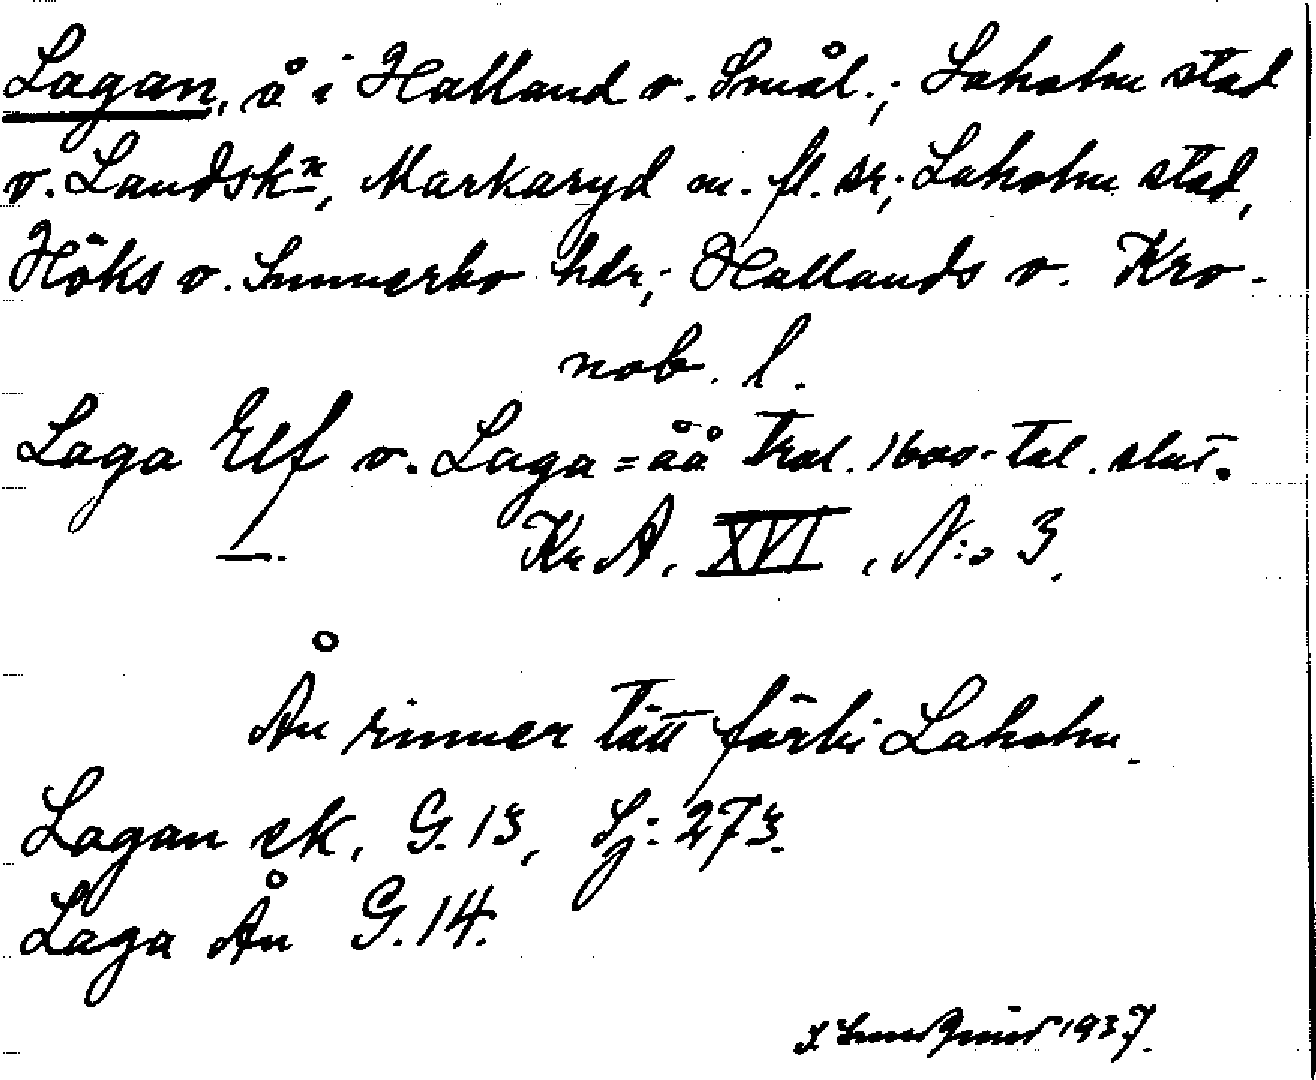 Lagan, å i Halland o. Smål.; Laholm stad
o. Landsk:n, Markaryd m. fl. sr; Laholm stad,
Höks o. Sunnerbo hdr; Hallands o. Kro-
nob. l.
Laga Elf o. Laga=åå Trol. 1600-tal. slut.
—. Kr. A. XVI, N:o 3.
Ån rinner tätt förbi Laholm.
Lagan ek. G. 13, Lj: 273.
Laga Ån G. 14.
1937.